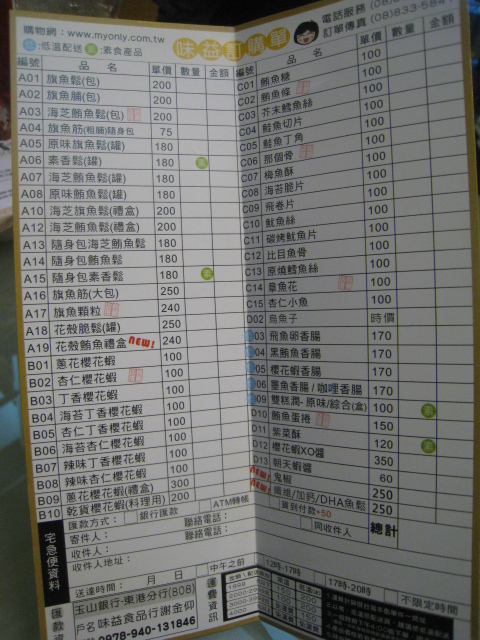 購物網：www.myonly.com.tw
:低溫配送 素:素食產品
味益訂購單
電話服務 (08)
訂單傳真 (08)833-584
編號 品名 單價 數量 金額
A01 旗魚鬆(包) 200
A02 旗魚脯(包) 200
A03 海芝鮪魚鬆(包) 200
A04 旗魚筋(粗腩)隨身包 75
A05 原味旗魚鬆(罐) 180
A06 素香鬆(罐) 180 素
A07 海芝鮪魚鬆(罐) 180
A08 原味鮪魚鬆(罐) 180
A10 海芝旗魚鬆(禮盒) 200
A12 海芝鮪魚鬆(禮盒) 200
A13 隨身包海芝鮪魚鬆 180
A14 隨身包鮪魚鬆 180
A15 隨身包素香鬆 180 素
A16 旗魚筋(大包) 250
A17 旗魚顆粒 240
A18 花殼脆鬆(罐) 250
A19 花殼鮪魚禮盒 NEW! 240
B01 蔥花櫻花蝦 100
B02 杏仁櫻花蝦 100
B03 丁香櫻花蝦 100
B04 海苔丁香櫻花蝦 100
B05 杏仁丁香櫻花蝦 100
B06 海苔杏仁櫻花蝦 100
B07 辣味丁香櫻花蝦 100
B08 辣味杏仁櫻花蝦 100
B09 蔥花櫻花蝦(禮盒) 300
B10 乾貨櫻花蝦(料理用) 200
編號 品名 單價 數量 金額
C01 鮪魚糖 100
C02 鮪魚條 100
C03 芥末鱈魚絲 100
C04 鮭魚切片 100
C05 鮭魚丁角 100
C06 那個骨 100
C07 梅魚酥 100
C08 海苔脆片 100
C09 飛卷片 100
C10 魷魚絲 100
C11 碳烤魷魚片 100
C12 比目魚骨 100
C13 原燒鱈魚絲 100
C14 章魚花 100
C15 杏仁小魚 100
D02 烏魚子 時價
D03 飛魚卵香腸 170
D04 黑鮪魚香腸 170
D05 櫻花蝦香腸 170
D06 墨魚香腸/咖哩香腸 170
D09 雙糕潤-原味/綜合(盒) 100 素
D10 鮪魚蛋捲 150
D11 紫菜酥 120 素
D12 櫻花蝦XO醬 350
D13 朝天蝦醬 60
NEW! 鬼椒 250
NEW! 纖維/加鈣/DHA魚鬆 250
匯款方式： 銀行匯款 ATM轉帳 貨到付款+50
總計
宅急便資料
寄件人： 聯絡電話：
收件人： 聯絡電話： 同收件人
收件人地址：
送達時間： 月 日 中午之前 12時-17時 17時-20時 不限定時間
玉山銀行-東港分行(808)
戶名 味益食品行謝金仰
0978-940-131846
運費資訊